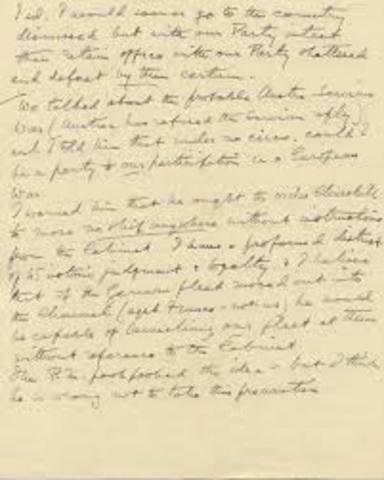 I said, I would sooner go to the country
dismissed but with our Party intact
than retain office with our Party shattered
and defeat by them certain.
We talked about the probable Austro Servian
War (Austria has refused the Servian reply)
and I told him that under no circs. could I
be a party to our participation in a European
War.
I warned him that he ought to order Churchill
to move no ship anywhere without instructions
from the Cabinet I have a profound distrust
of judgment & loyalty & I believe
that if the German fleet moved out into
the Channel (agst France - not us) he would
be capable of launching our fleet at them
without reference to the Cabinet
The P.M. pooh poohed the idea - but I think
he is wrong not to take this precaution